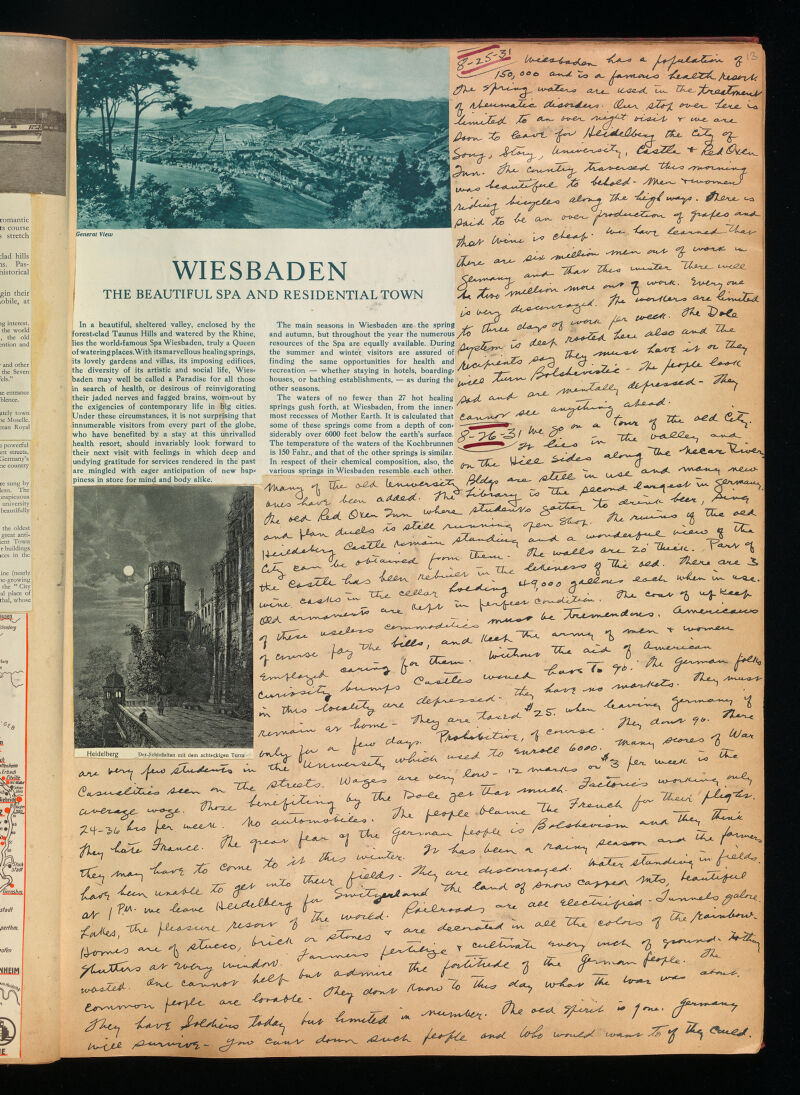 General View
WIESBADEN
THE BEAUTIFUL SPA AND RESIDENTIAL TOWN
In a beautiful, sheltered valley, enclosed by the
forest-clad Taunus Hills and watered by the Rhine,
lies the world-famous Spa Wiesbaden, truly a Queen
of watering places. With its marvellous healing springs,
its lovely gardens and villas, its imposing edifices,
the diversity of its artistic and social life, Wies-
baden may well be called a Paradise for all those
in search of health, or desirous of reinvigorating
their jaded nerves and fagged brains, worn-out by
the exigencies of contemporary life in big cities.
Under these circumstances, it is not surprising that
innumerable visitors from every part of the globe,
who have benefited by a stay at this unrivalled
health resort, should invariably look forward to
their next visit with feelings in which deep and
undying gratitude for services rendered in the past
are mingled with eager anticipation of new hap-
piness in store for mind and body alike.
The main seasons in Wiesbaden are the spring
and autumn, but throughout the year the numerous
resources of the Spa are equally available. During
the summer and winter visitors are assured of
finding the same opportunities for health and
recreation — whether staying in hotels, boarding-
houses, or bathing establishments, — as during the
other seasons.
The waters of no fewer than 27 hot healing
springs gush forth, at Wiesbaden, from the inner-
most recesses of Mother Earth. It is calculated that
some of these springs come from a depth of con-
siderably over 6000 feet below the earth's surface.
The temperature of the waters of the Kochbrunnen
is 150 Fahr., and that of the other springs is similar.
In respect of their chemical composition, also, the
various springs in Wiesbaden resemble each other.
13
8-25-31 Wiesbaden has a population of
150,000 and is a famous health resort.
The spring waters are used in the treatment
of rheumatic disorders. Our stop over here is
limited to an over night visit & we are
soon to leave for Heidelberg the City of
Song, Story, University, Castle & Red Oxen
Inn. The country traversed this morning
was beautiful to behold - Men & women
riding bicycles along the high ways. There is
said to be an over production of grapes and
that wine is cheap. We have learned that
there are six million men out of work in
Germany and that this winter there will
be two million more out of work. Every one
is very discouraged. The workers are limited
to three days of work per week. The Dole
system is deep rooted here also and the
recipients say they must have it or they
will turn Bolshevistic - The people look
sad and are mentally depressed - They
cannot see anything ahead.
8-26-31 We go on a tour of the old City.
It lies in the valley and
on the Hill sides along the Necar River
Many of the old University Bldgs are still in use and many new
ones have been added. The Library is the second largest in Germany.
The old Red Oxen Inn where students gather to drink beer, sing
and plan duels is still running open shop. The ruins of the old
Heidelberg Castle remain standing and a wonderful view of the
City can be obtained from them. The walls are 20' thick. Part of
the Castle has been rebuilt in the likeness of the old. There are 3
wine casks in the cellar holding 49,000 gallons each when in use.
Old armaments are kept in perfect condition. The cost of up keep
of these useless commodities must be tremendous. Americans
of course pay the bills, and keep the army of men & women
employed caring for them. Without the aid of American
curiosity bumps Castles would have to go. The German folks
in this locality are depressed. They have no markets. They must
remain at home - They are taxed $25. when leaving Germany if
only for a few days. Prohibitive, of course. They dont go. There
Heidelberg Der Schloßaltan mit dem achteckigen Turm
are very few students in the University which used to enroll 6000. Many scores of War
Casualities seen on the streets. Wages are very low - 12 marks or $3 per week is the
average wage. Those benefiting by the Dole get that much. Factories working only
24-36 hrs per week. No automobiles. The people blame the French for their plight.
They hate France. The great fear of the German people is Bolshevism and they think
they may have to come to it this winter. It has been a rainy season and the farmers
have been unable to get into their fields. They are discouraged. Water standing in fields.
at 1 PM. we leave Heidelberg for Switzerland the land of snow capped Mts, beautiful
Lakes, the pleasure resort of the world. Railroads are all electrified - Tunnels galore.
Homes are of stucco, brick or stones & are decorated in all the colors of the rainbow.
Shutters at every window. Farmers fertilize & cultivate every inch of ground. Nothing
wasted. One cannot help but admire the fortitude of the German people. The
common people are lovable - They dont know to this day what the war was about.
They have Soldiers today but limited in number. The old spirit is gone. Germany
will survive - you cant down such people and who would want to if they could.